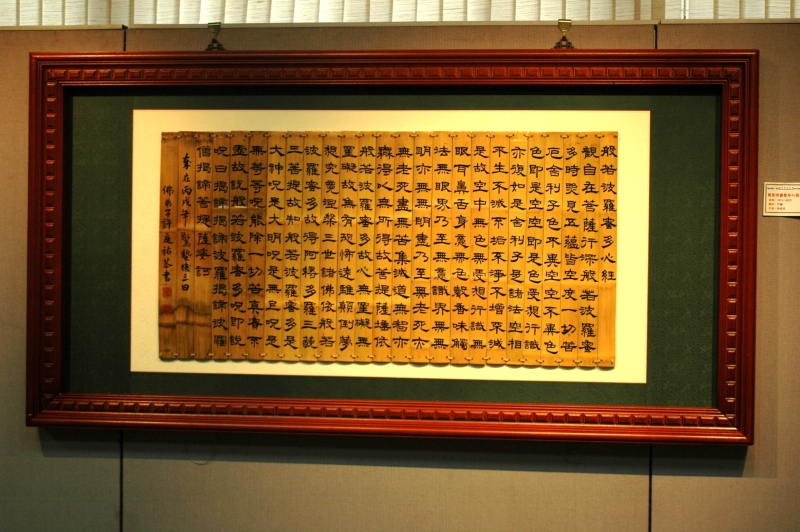 般若波羅蜜多心經
觀自在菩薩行深般若波羅蜜
多時照見五蘊皆空度一切苦
厄舍利子色不異空空不異色
色即是空空即是色受想行識
亦復如是舍利子是諸法空相
不生不滅不垢不淨不增不減
是故空中無色無受想行識無
眼耳鼻舌身意無色聲香味觸
法無眼界乃至無意識界無無
明亦無無明盡乃至無老死亦
無老死盡無苦集滅道無智亦
無得以無所得故菩提薩埵依
般若波羅蜜多故心無罣礙無
罣礙故無有恐怖遠離顛倒夢
想究竟涅槃三世諸佛依般若
波羅蜜多故得阿耨多羅三藐
三菩提故知般若波羅蜜多是
大神呪是大明呪是無上呪是
無等等呪能除一切苦真實不
虛故說般若波羅蜜多呪即說
呪曰揭諦揭諦波羅揭諦波羅
僧揭諦菩提薩婆訶
歲在丙戌年驚蟄後三日
佛弟子許書